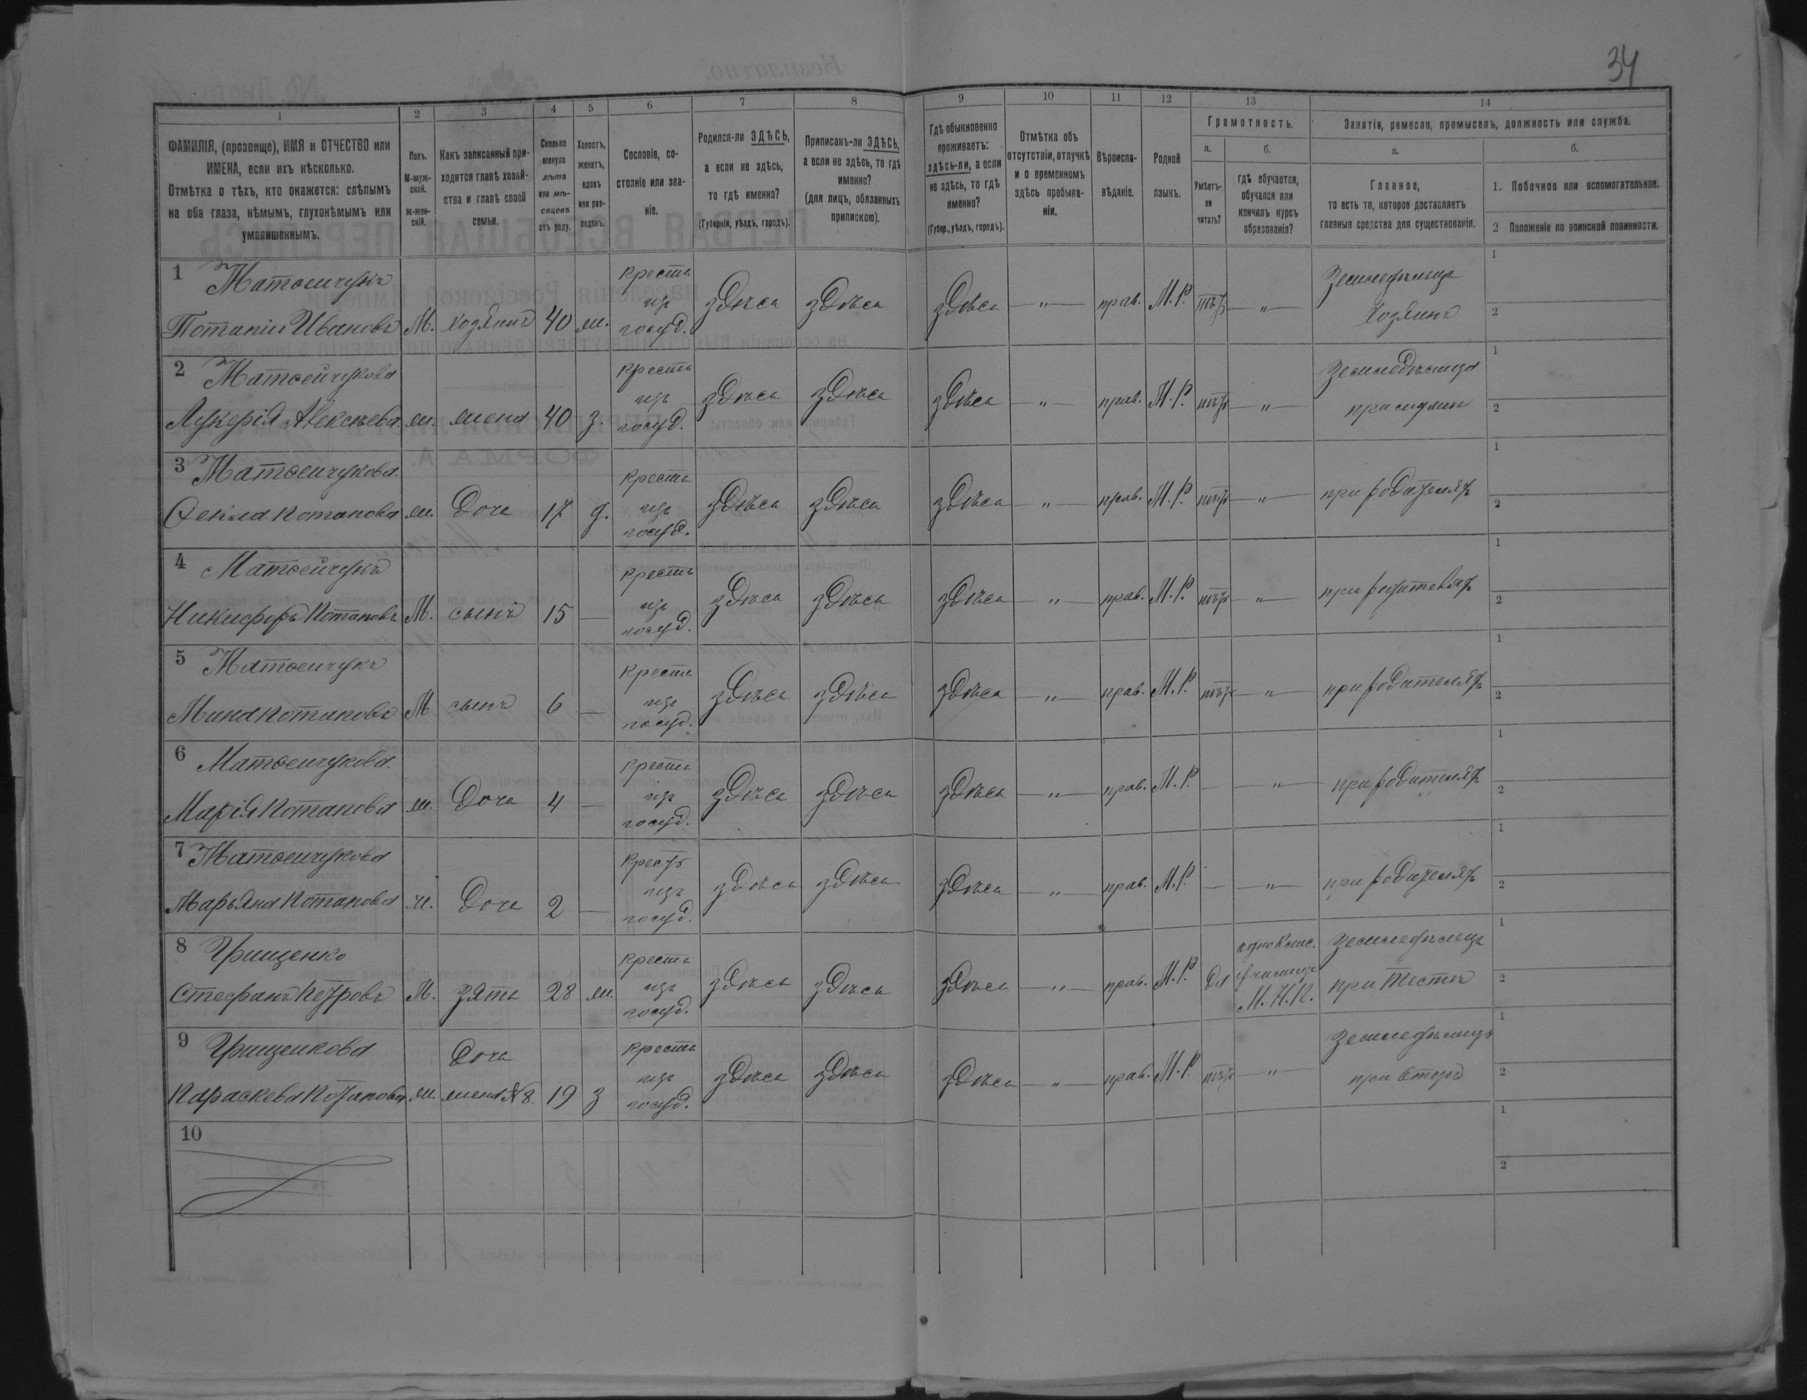 34
1
2
3
4
5
6
7
8
9
10
11
12
13
14
ФАМИЛІЯ, (прозвище), ИМЯ и ОТЧЕСТВО или
ИМЕНА, если ихъ нѣсколько.
Отмѣтка о тѣхъ, кто окажется: слѣпымъ
на оба глаза, нѣмымъ, глухонѣмымъ или
умалишеннымъ.
Полъ.
М-муж-
ской.
ж-жен-
скій.
Какъ записанный при-
ходится главѣ хозяй-
ства и главѣ своей
семьи.
Сколько
минуло
лѣтъ
или мѣ-
сяцевъ
отъ роду.
Холостъ,
женатъ,
вдовъ
или раз-
веденъ.
Сословіе, со-
стояніе или зва-
ніе.
Родился-ли ЗДѢСЬ,
а если не здѣсь,
то гдѣ именно?
(Губернія, уѣздъ, городъ).
Приписанъ-ли ЗДѢСЬ,
а если не здѣсь, то гдѣ
именно?
(для лицъ, обязанныхъ
припискою).
Гдѣ обыкновенно
проживаетъ:
здѣсь-ли, а если
не здѣсь, то гдѣ
именно?
(Губер., уѣздъ, городъ).
Отмѣтка объ
отсутствіи, отлучкѣ
и о временномъ
здѣсь пребыва-
ніи.
Вѣроиспо-
вѣданіе.
Родной
языкъ.
Грамотность.
а.
Умѣетъ-
ли
читать?
б.
Гдѣ обучается,
обучался или
кончилъ курсъ
образованія?
Занятія, ремесло, промыселъ, должность или служба.
а.
Главное,
то есть то, которое доставляетъ
главныя средства для существованія.
б.
1. Побочное или вспомогательное.
2 Положеніе по воинской повинности.
1 Матвейчукъ
Потапій Ивановъ М. хозяинъ 40 ж. крестъ изъ госуд. здѣсь здѣсь здѣсь " прав. М.Р. нѣтъ " Земледѣлецъ Хозяинъ 1 2
2 Матвейчукова
Лукерія Алексѣева ж. жена 40 з. крестъ изъ госуд. здѣсь здѣсь здѣсь " прав. М.Р. нѣтъ " 1 2
3 Матвейчукова
Фекла Потапова ж. дочь 17 д. крестъ изъ госуд. здѣсь здѣсь здѣсь " прав. М.Р. нѣтъ " при родителяхъ 1 2
4 Матвейчукъ
Никифоръ Потаповъ М. сынъ 15 — крестъ изъ госуд. здѣсь здѣсь здѣсь " прав. М.Р. нѣтъ " при родителяхъ 1 2
5 Матвейчукъ
Мина Потаповъ М сынъ 6 — крестъ изъ госуд. здѣсь здѣсь здѣсь " прав. М.Р. нѣтъ " при родителяхъ 1 2
6 Матвейчукова
Марія Потапова ж. дочь 4 — крестъ изъ госуд. здѣсь здѣсь здѣсь " прав. М.Р. — " при родителяхъ 1 2
7 Матвейчукова
Марьяна Потапова ж. дочь 2 — крестъ изъ госуд. здѣсь здѣсь здѣсь " прав. М.Р. — " при родителяхъ 1 2
8 Грищенко
Стефанъ Петровъ М. зять 28 ж. крестъ изъ госуд. здѣсь здѣсь здѣсь " прав. М.Р. да однокласс. училище М.Н.П. Земледѣлецъ при тестѣ 1 2
9 Грищенкова
Параскева Потапова ж. дочь жена №8. 19 з крестъ изъ госуд. здѣсь здѣсь здѣсь " прав. М.Р. нѣтъ " 1 2
10 1 2